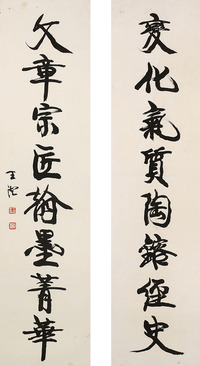 變化氣質陶鎔經史
文章宗匠翰墨菁華